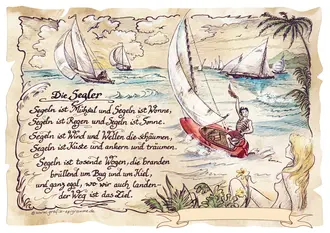 Die Segler
Segeln ist Mühsal und Segeln ist Wonne,
Segeln ist Regen und Segeln ist Sonne.
Segeln ist Wind und Wellen die schäumen,
Segeln ist Küste und ankern und träumen.
Segeln ist tosende Wogen, die branden
brüllend um Bug und um Kiel,
und ganz egal, wo wir auch landen -
der Weg ist das Ziel.